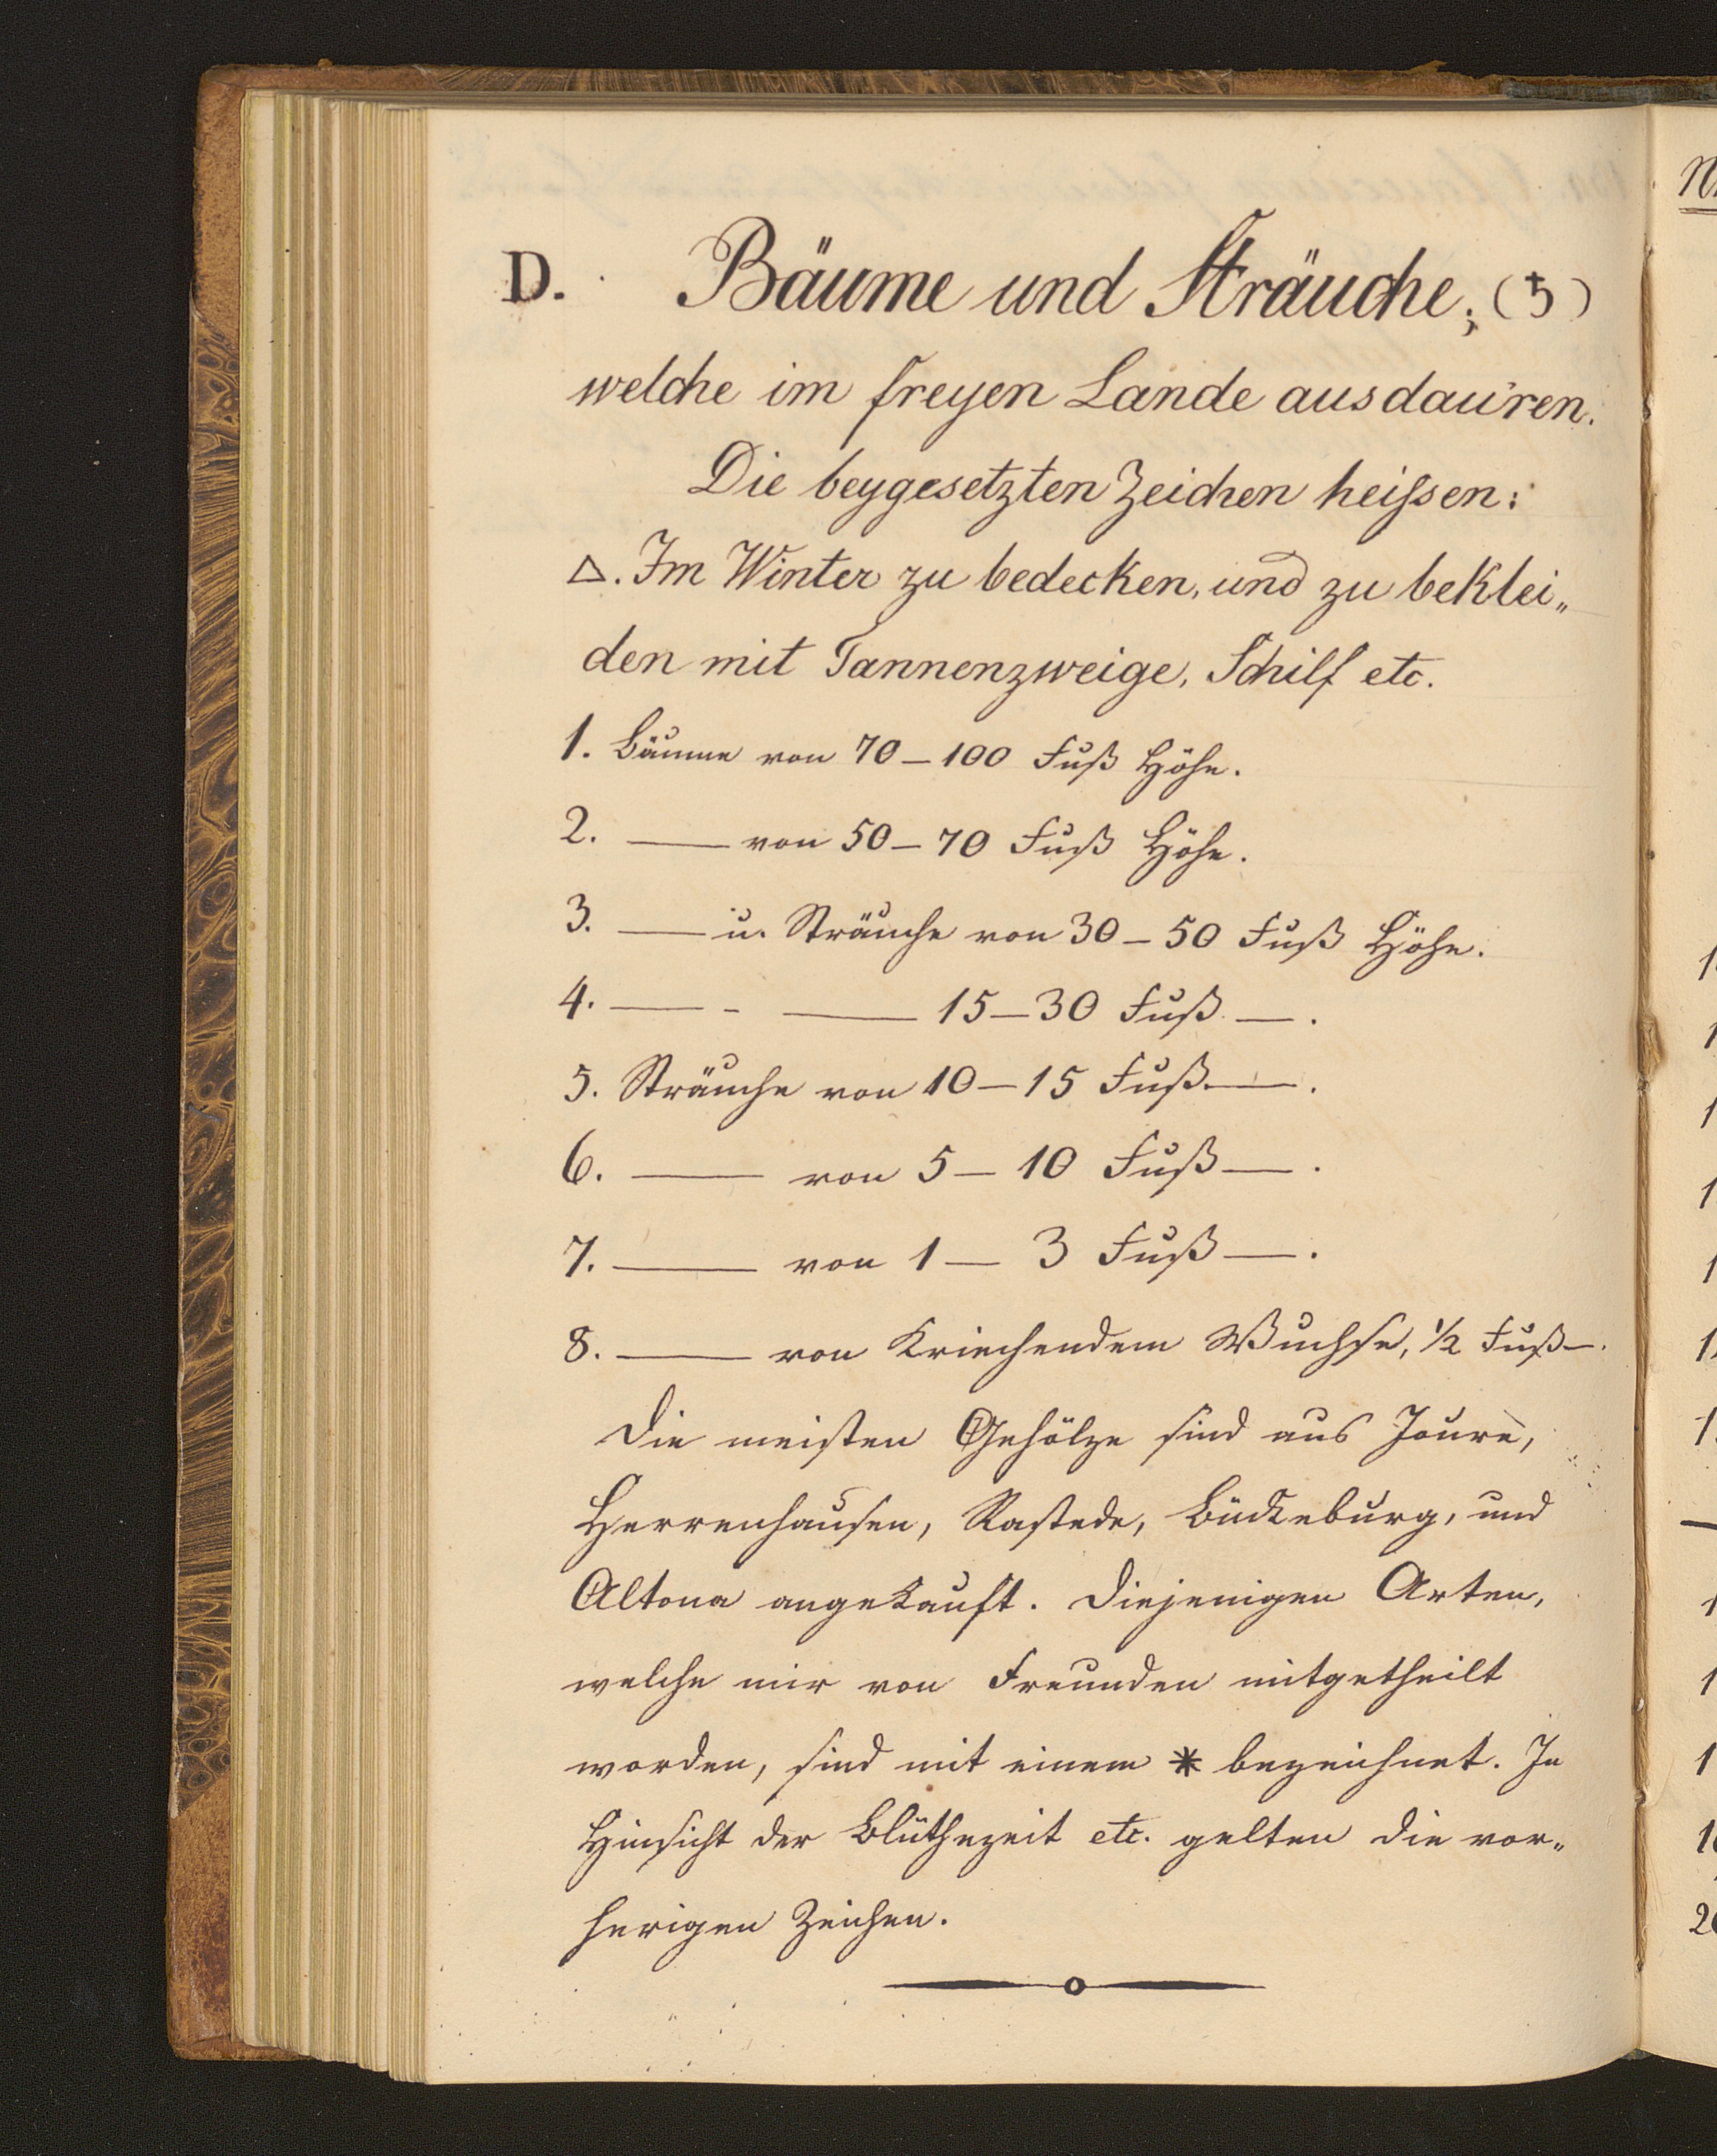 D. Bäume und Sträuche; (♄)
welche im freyen Lande ausdauren.
Die beygesetzten Zeichen heißen:
△. Im Winter zu bedecken, und zu beklei„
den mit Tannenzweige, Schilf etc.
1. Bäume von 70–100 Fuß Höhe.
2. — von 50–70 Fuß Höhe.
3. — u. Sträuche von 30–50 Fuß Höhe.
4. — - — 15–30 Fuß —.
5. Sträuche von 10–15 Fuß —.
6. — von 5–10 Fuß —.
7. — von 1–3 Fuß —.
8. — von Kriechendem Wuchse, 1/2 Fuß —.
Die meisten Gehölze sind aus Joure,
Herrenhausen, Rastede, Bückeburg, und
Altona angekauft. Diejenigen Arten,
welche mir von Freunden mitgetheilt
worden, sind mit einem * bezeichnet. In
Hinsicht der Blüthezeit etc. gelten die vor„
herigen Zeichen.